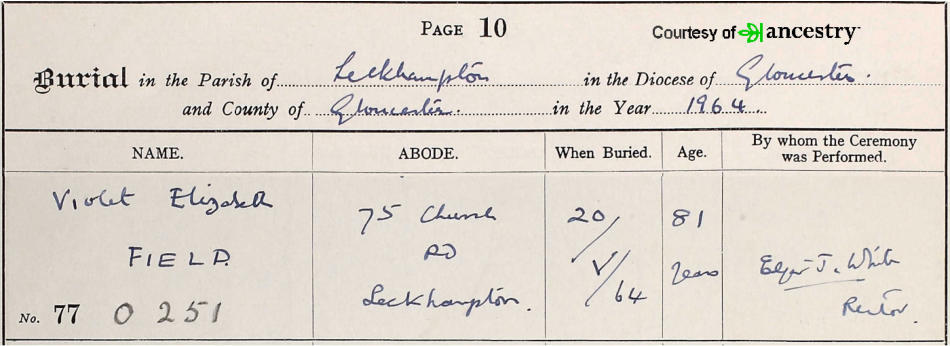 PAGE 10
Courtesy of ancestry
Burial in the Parish of Leckhampton in the Diocese of Gloucester.
and County of Gloucester. in the Year 1964.
NAME. ABODE. When Buried. Age. By whom the Ceremony was Performed.
Violet Elizabeth
FIELD.
No. 77 0 251
75 Church
RD
Leckhampton.
20/
V/
64
81
years
Edgar J. White
Rector.